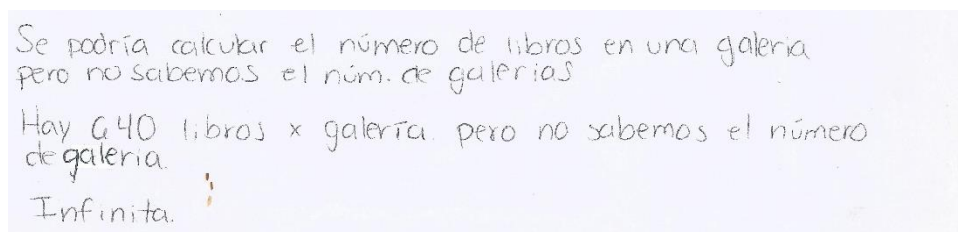 Se podría calcular el número de libros en una galeria
pero no sabemos el núm. de galerias
Hay 640 libros x galería. pero no sabemos el número
de galeria.
Infinita.